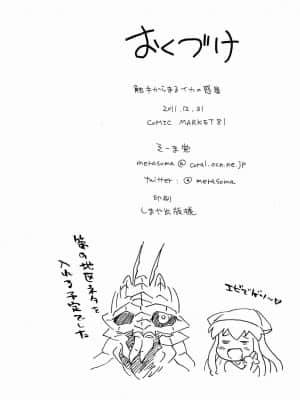 おくづけ
触手からまるイカの惑星
2011.12.31
COMIC MARKET 81
そーま堂
merasoma@coral.ocn.ne.jp
twitter: @merasoma
印刷
しまや出版様
エビでゲソ〜♡
第9地区ネタを
入れる予定でした